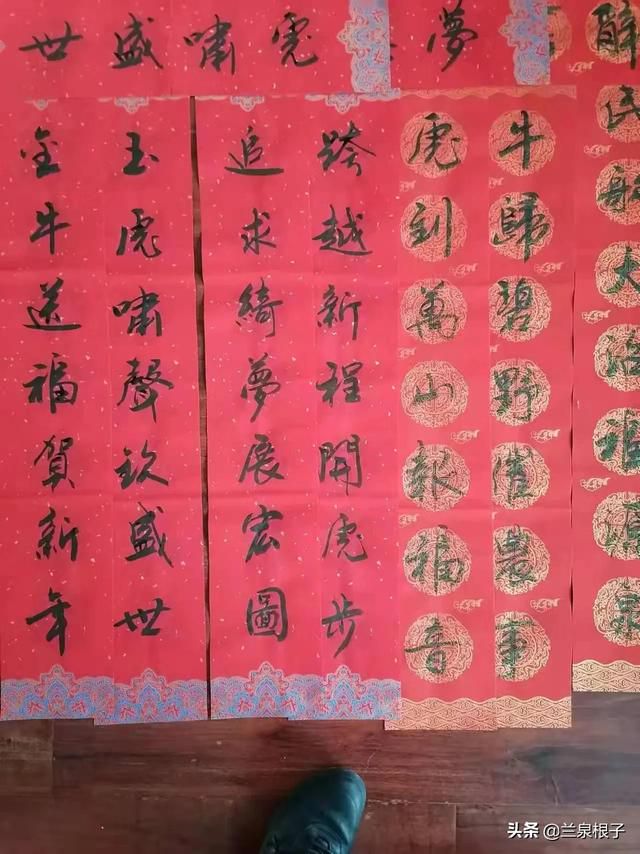 夢
虎嘯盛世
牛歸碧野催農事
虎到萬山報福音
跨越新程開虎步
追求綺夢展宏圖
玉虎嘯聲欽盛世
金牛送福賀新年
头条 @兰泉根子